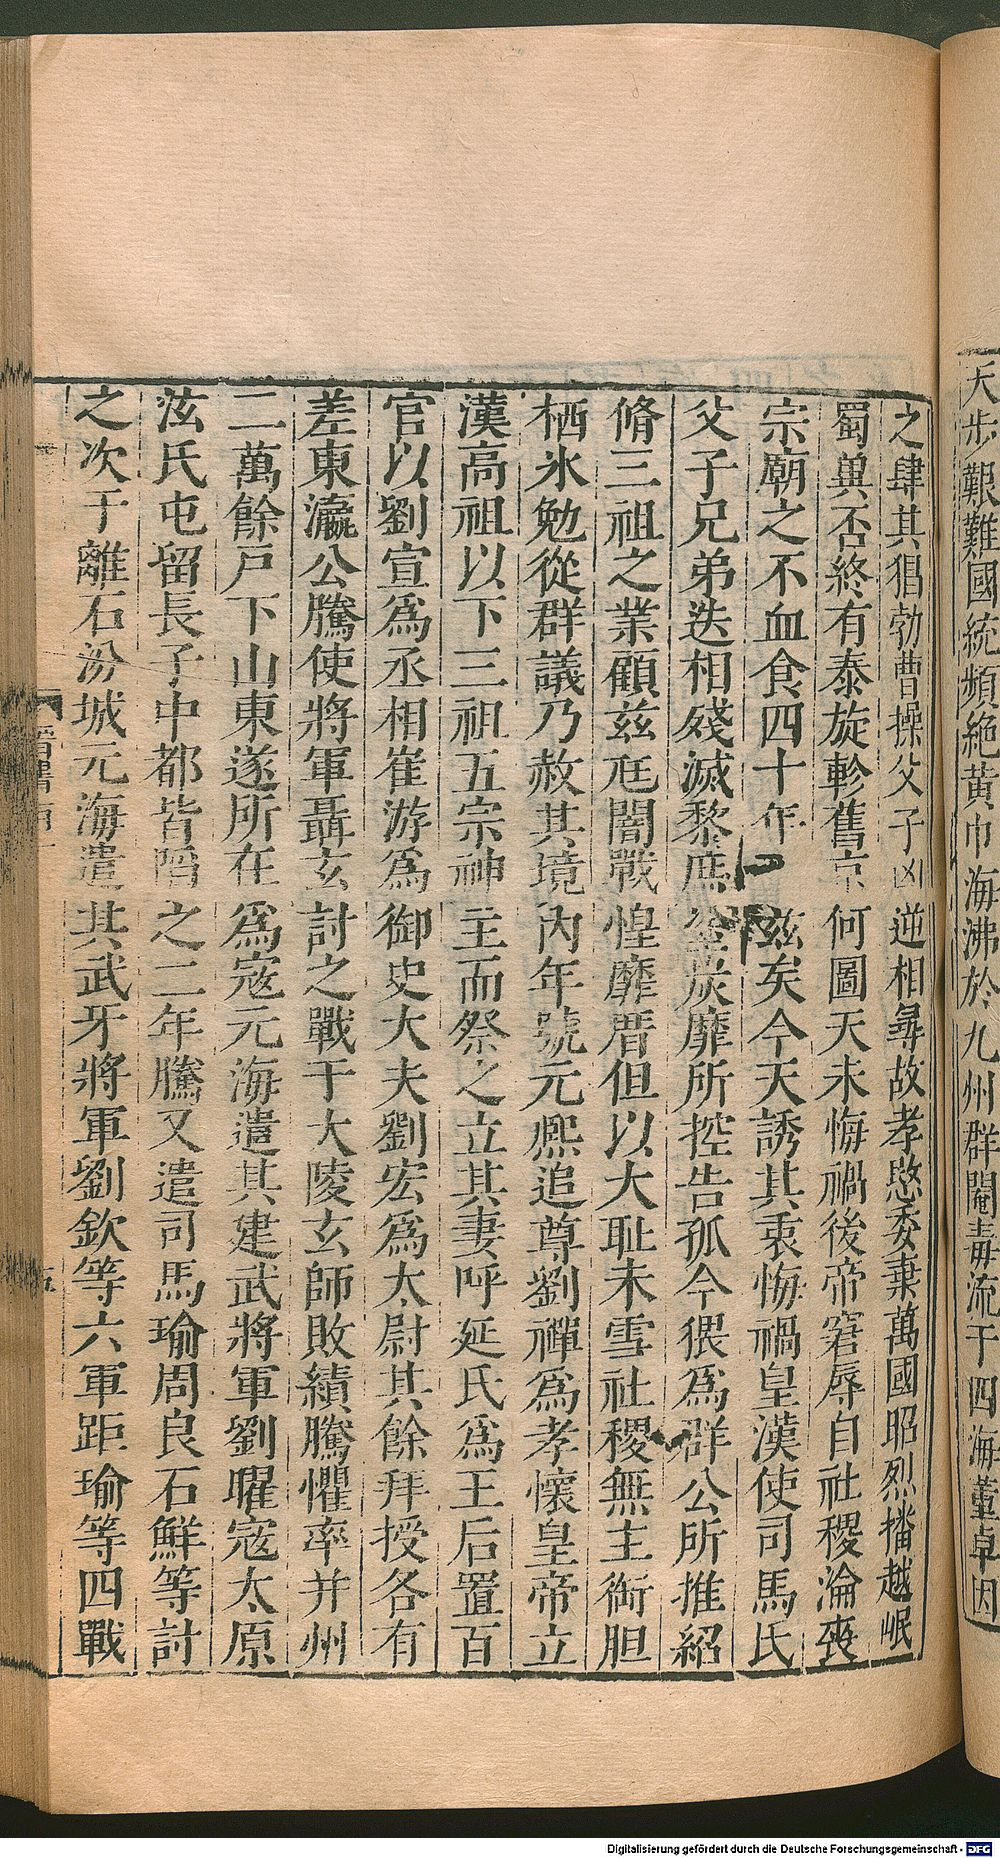 天步艱難國統頻絕黃巾海沸於九州群閹毒流于四海董卓因
之肆其猖勃曹操父子凶逆相尋故孝愍委棄萬國昭烈播越岷
蜀兾否終有泰旋軫舊京何圖天未悔禍後帝窘辱自社稷淪喪
宗廟之不血食四十年 兹矣今天誘其衷悔禍皇漢使司馬氏
父子兄弟迭相殘滅黎庶塗炭靡所控告孤今猥爲群公所推紹
脩三祖之業顧兹尫闇戰惶靡厝但以大耻未雪社稷無主銜胆
栖氷勉從群議乃赦其境內年號元熙追尊劉禪爲孝懷皇帝立
漢高祖以下三祖五宗神主而祭之立其妻呼延氏爲王后置百
官以劉宣爲丞相崔游爲御史大夫劉宏爲太尉其餘拜授各有
差東瀛公騰使將軍聶玄討之戰于大陵玄師敗績騰懼率并州
二萬餘戸下山東遂所在爲寇元海遣其建武將軍劉曜寇太原
泫氏屯留長子中都皆陷之二年騰又遣司馬瑜周良石鮮等討
之次于離石汾城元海遣其武牙將軍劉欽等六軍距瑜等四戰
晉書
Digitalisierung gefördert durch die Deutsche Forschungsgemeinschaft - DFG